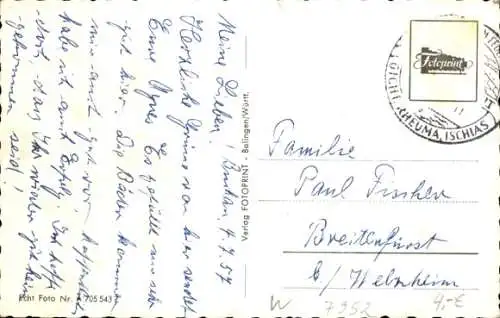 Meine Lieben! Buchau, 4.9.57
Herzliche Grüsse von hier sendet
Eure Agnes. Es gefällt mir sehr
gut hier. Die Bäder bekommen
mir auch gut
habe ich auch Erfolg. Ich hoffe
doch, dass Ihr wieder gut heim-
gekommen seid!
Echt Foto Nr. 705 543
Verlag FOTOPRINT - Balingen/Württ.
Fotoprint
GICHT, RHEUMA, ISCHIAS
Familie
Paul Fischer
Breitenfürst
b/ Welzheim
W 7952 4,-€